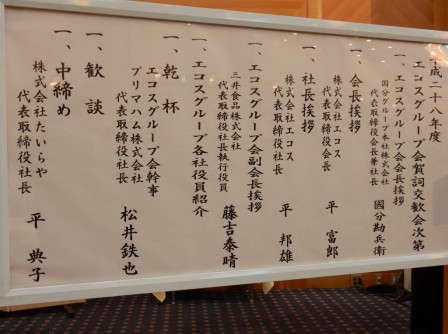 平成二十八年度
エコスグループ会賀詞交歓会次第
一、エコスグループ会会長挨拶
国分グループ本社株式会社
代表取締役会長兼社長 國分勘兵衛
一、会長挨拶
株式会社エコス
代表取締役会長 平 富郎
一、社長挨拶
株式会社エコス
代表取締役社長 平 邦雄
一、エコスグループ会副会長挨拶
三井食品株式会社
代表取締役社長執行役員 藤吉泰晴
一、エコスグループ各社役員紹介
一、乾杯
エコスグループ会幹事
プリマハム株式会社
代表取締役社長 松井鉄也
一、歓談
一、中締め
株式会社たいらや
代表取締役社長 平 典子